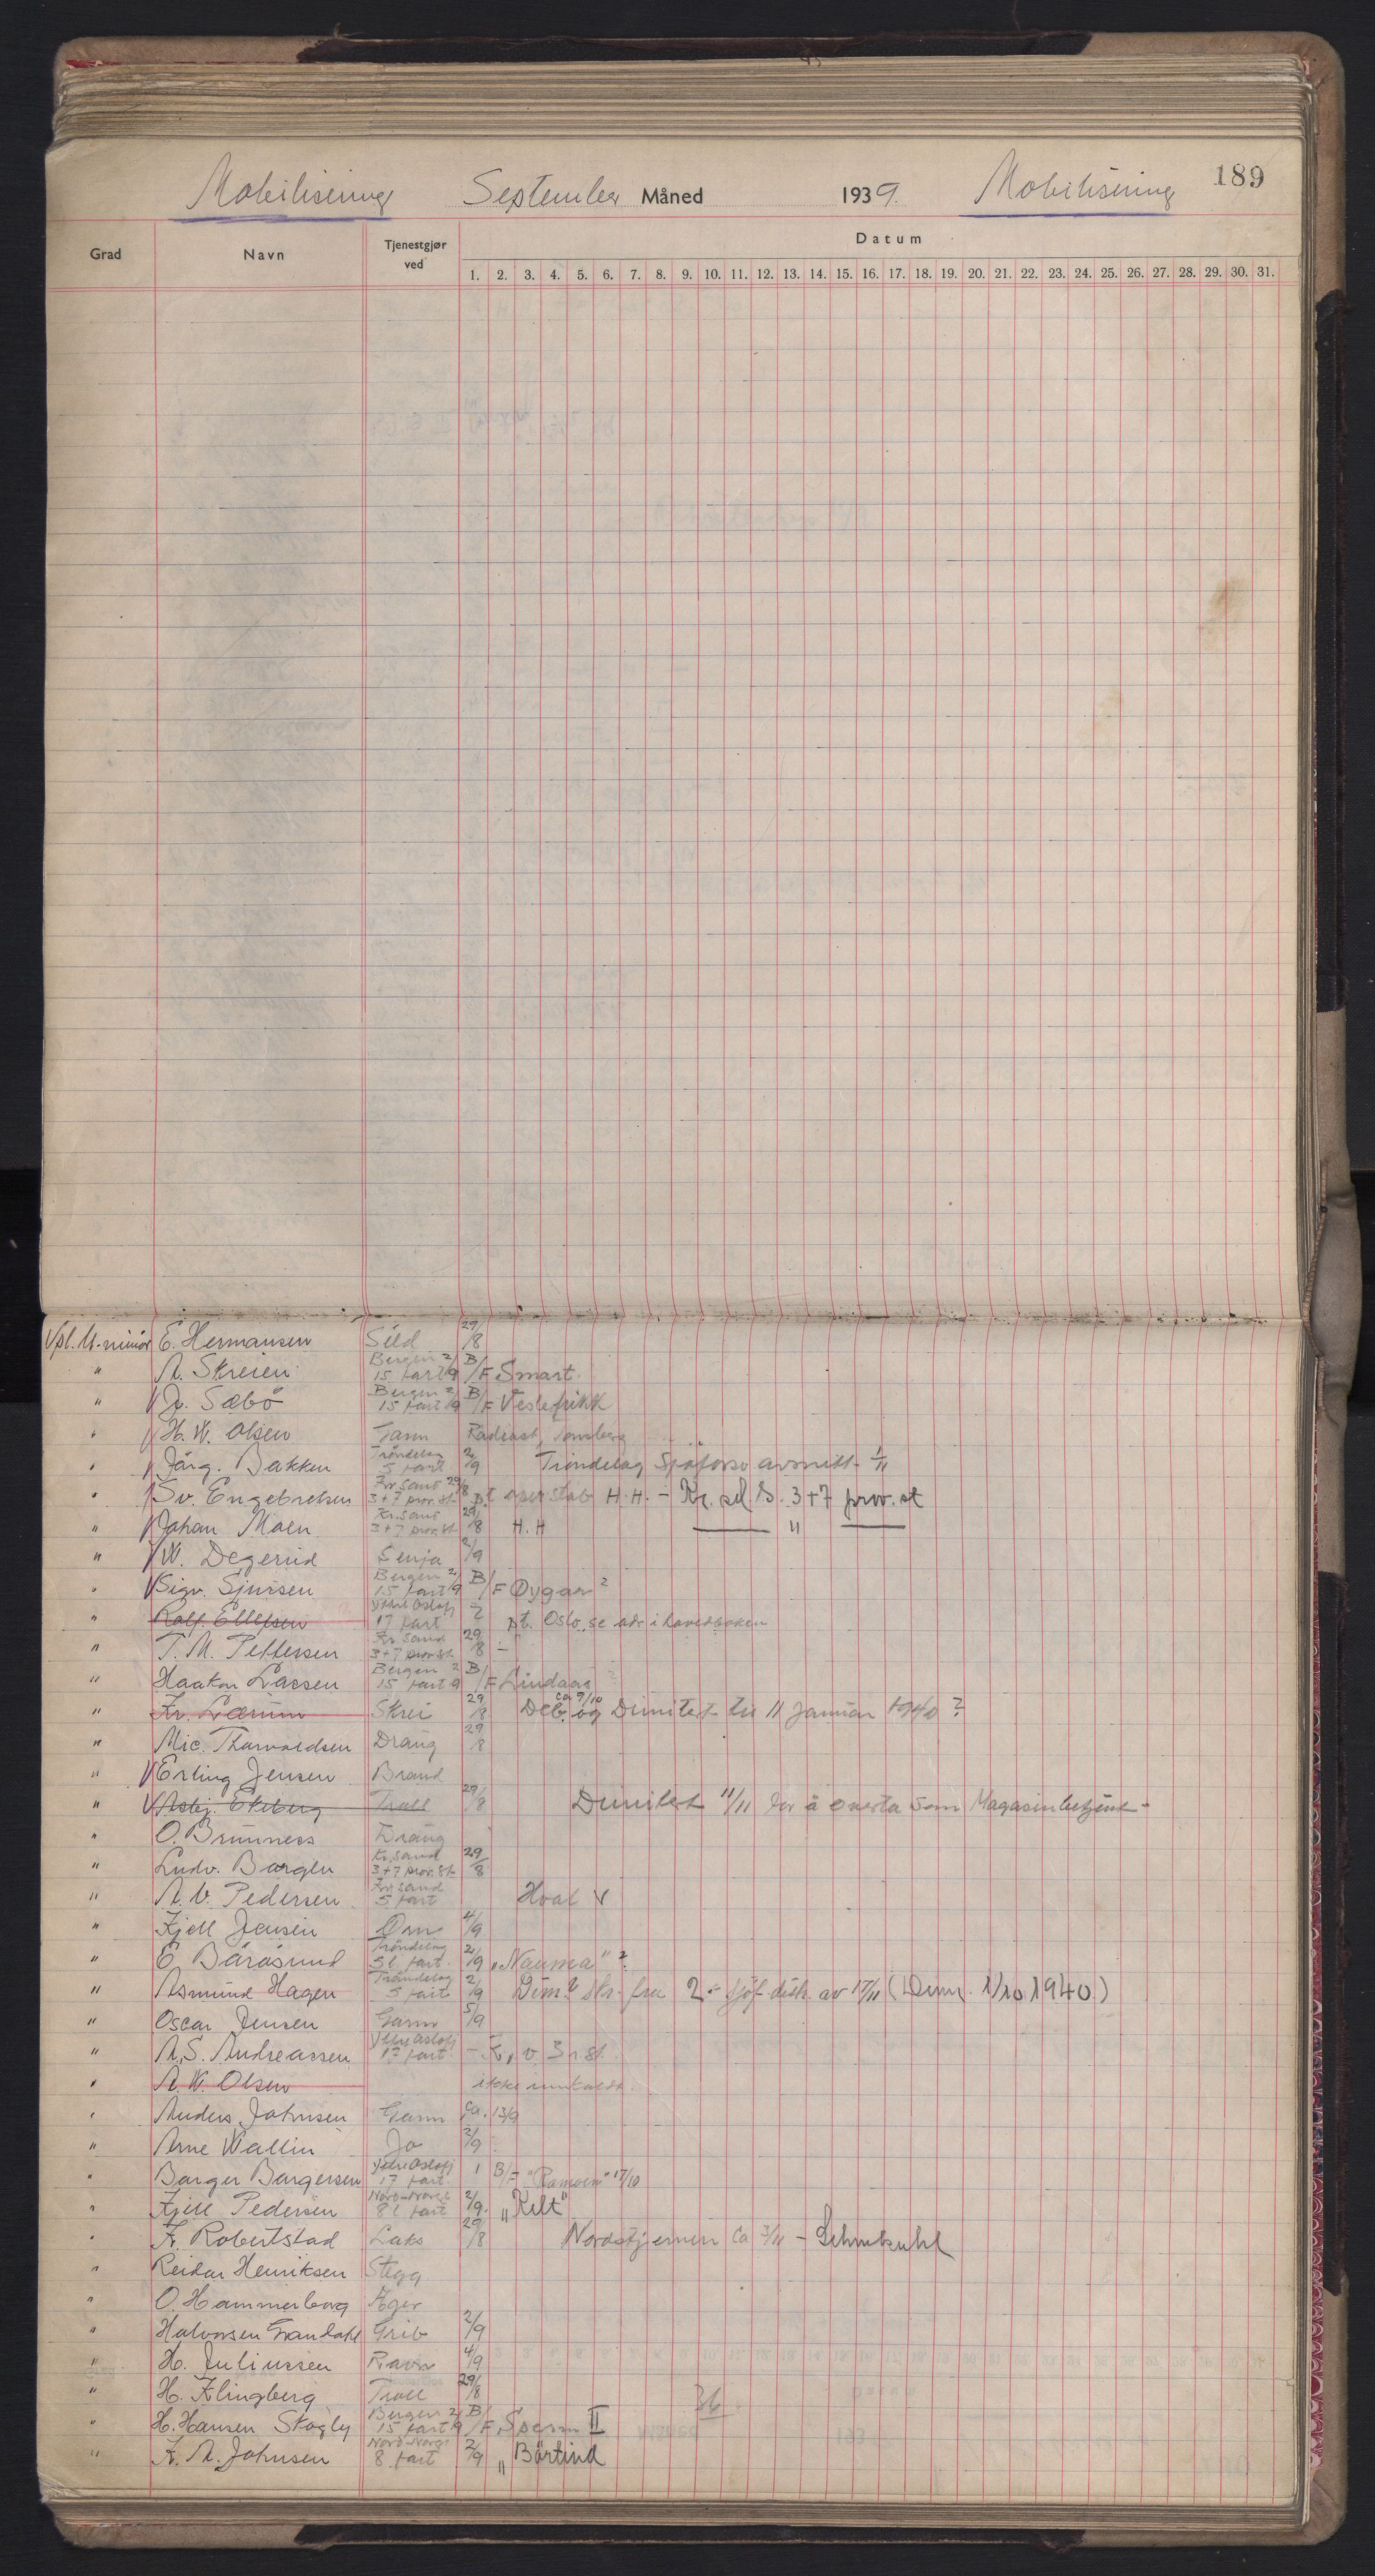 189
Mobilisering September Måned 1939. Mobilisering
Grad Navn Tjenestgjør ved Datum
1. 2. 3. 4. 5. 6. 7. 8. 9. 10. 11. 12. 13. 14. 15. 16. 17. 18. 19. 20. 21. 22. 23. 24. 25. 26. 27. 28. 29. 30. 31.
Vpl. U-minør E. Hermansen Sild 29/8
" A. Skreien Bergen 15 fart 2/9 B/F Smart
" J. Sæbö Bergen 15 fart 2/9 B/F Veslefrikk
" H. W. Olsen Garm Radioast, Tønsberg
" Jörg. Bakken Trøndelag 5 fart 2/9 Trøndelag Sjöforsv avsnitt 1/11
" Sv. Engebretsen Kr. Sand 3+7 prov. st. 29/8 pt oper stab H.H. - Kr. sd. S. 3+7 prov. st
" Johan Moen Kr. Sand 3+7 prov. st. 29/8 H.H "
" W. Degerud Senja 2/9
" Sigv. Sjursen Bergen 15 fart 2/9 B/F Øygar ?
" Rolf. Ellefsen Ytre Oslofj 17 fart pt. Oslo, se adr i hovedboken
" T. M. Pettersen Kr Sand 3+7 prov st. 29/8 -
" Haakon Larsen Bergen 15 fart 2/9 B/F Lindaas ?
" Kr. Lærum Skrei 29/8 Deb. og Dimitert til 11 januar 1940 ? ca 9/10
" Mic. Thorvaldsen Draug 29/8
" Erling Jensen Brand
" Asbj. Ekeberg Troll 29/8 Dimitert 11/11 for å overta som Magasinbetjent -
" O. Brunnes Draug
" Ludv. Borgen Kr. Sand 3+7 prov. st 29/8
" A. V. Pedersen Kr. Sand 5 fart Hval V
" Kjell Jensen Örn 4/9
" E. Båråsund Trøndelag 5 l. fart 2/9 „Nauma" ?
" Asmund Hagen Trøndelag 5 fart 2/9 Dim. skr. fra 2. sjöf. distr. av 17/11 (Dim. 1/10 1940)
" Oscar Jensen Garm 5/9
" A. S. Andreassen Ytre Oslofj 17 fart -
" A. W. Olsen ikke innkaldt
" Anders Johnsen Garm ca. 13/9
" Arne Wallin Jo 2/9
" Borger Borgersen Ytre Oslofj 17 fart 1 B/F "Ramoen" 17/10
" Kjell Pedersen Nord-Norge 8 l fart 2/9. „Kelt"
" K. Robertstad Laks 29/8 Nordstjernen ca 3/11 - Lehmkuhl
" Reidar Henriksen Stegg
" O. Hammerborg Æger
" Halvorsen Grandahl Grib 2/9
" H. Juliussen Ravn 4/9
" H. Klingberg Troll 29/8 36
" H. Hansen Skogly Bergen 15 fart 2/9 B/F, Sperm II
" K. A. Johnsen Nord-Norge 8 fart 2/9 „Börtind